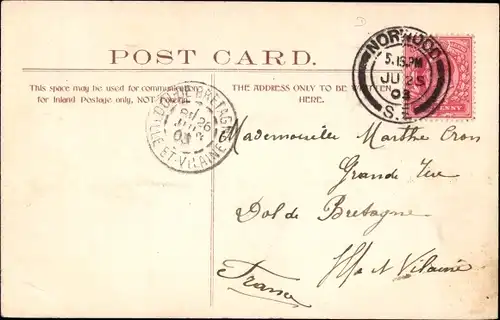 POST CARD.
This space may be used for communication
for Inland Postage only, NOT Foreign.
THE ADDRESS ONLY TO BE WRITTEN
HERE.
NORWOOD
5.15.PM
JU 25
S.E.
PENNY
DOL-DE-BRETAGNE
26
03
ILLE-ET-VILAINE
Mademoiselle Marthe Cron
Grande Rue
Dol de Bretagne
Ille et Vilaine
France